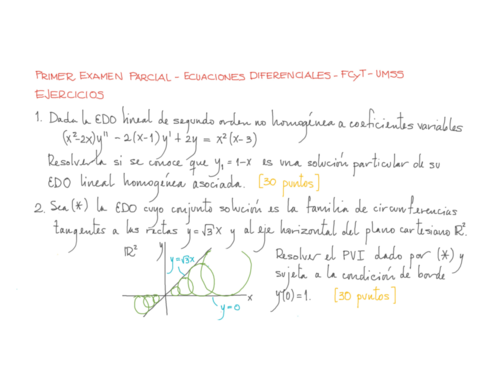 PRIMER EXAMEN PARCIAL - ECUACIONES DIFERENCIALES - FCyT - UMSS
EJERCICIOS
1. Dada la EDO lineal de segundo orden no homogénea a coeficientes variables
(x²-2x)y'' - 2(x-1)y' + 2y = x²(x-3)
Resolverla si se conoce que y₁ = 1-x es una solución particular de su
EDO lineal homogénea asociada. [30 puntos]
2. Sea (*) la EDO cuyo conjunto solución es la familia de circunferencias
tangentes a las rectas y=√3x y al eje horizontal del plano cartesiano ℝ².
ℝ²
y
y=√3x
x
y=0
Resolver el PVI dado por (*) y
sujeta a la condición de borde
y(0)=1. [30 puntos]